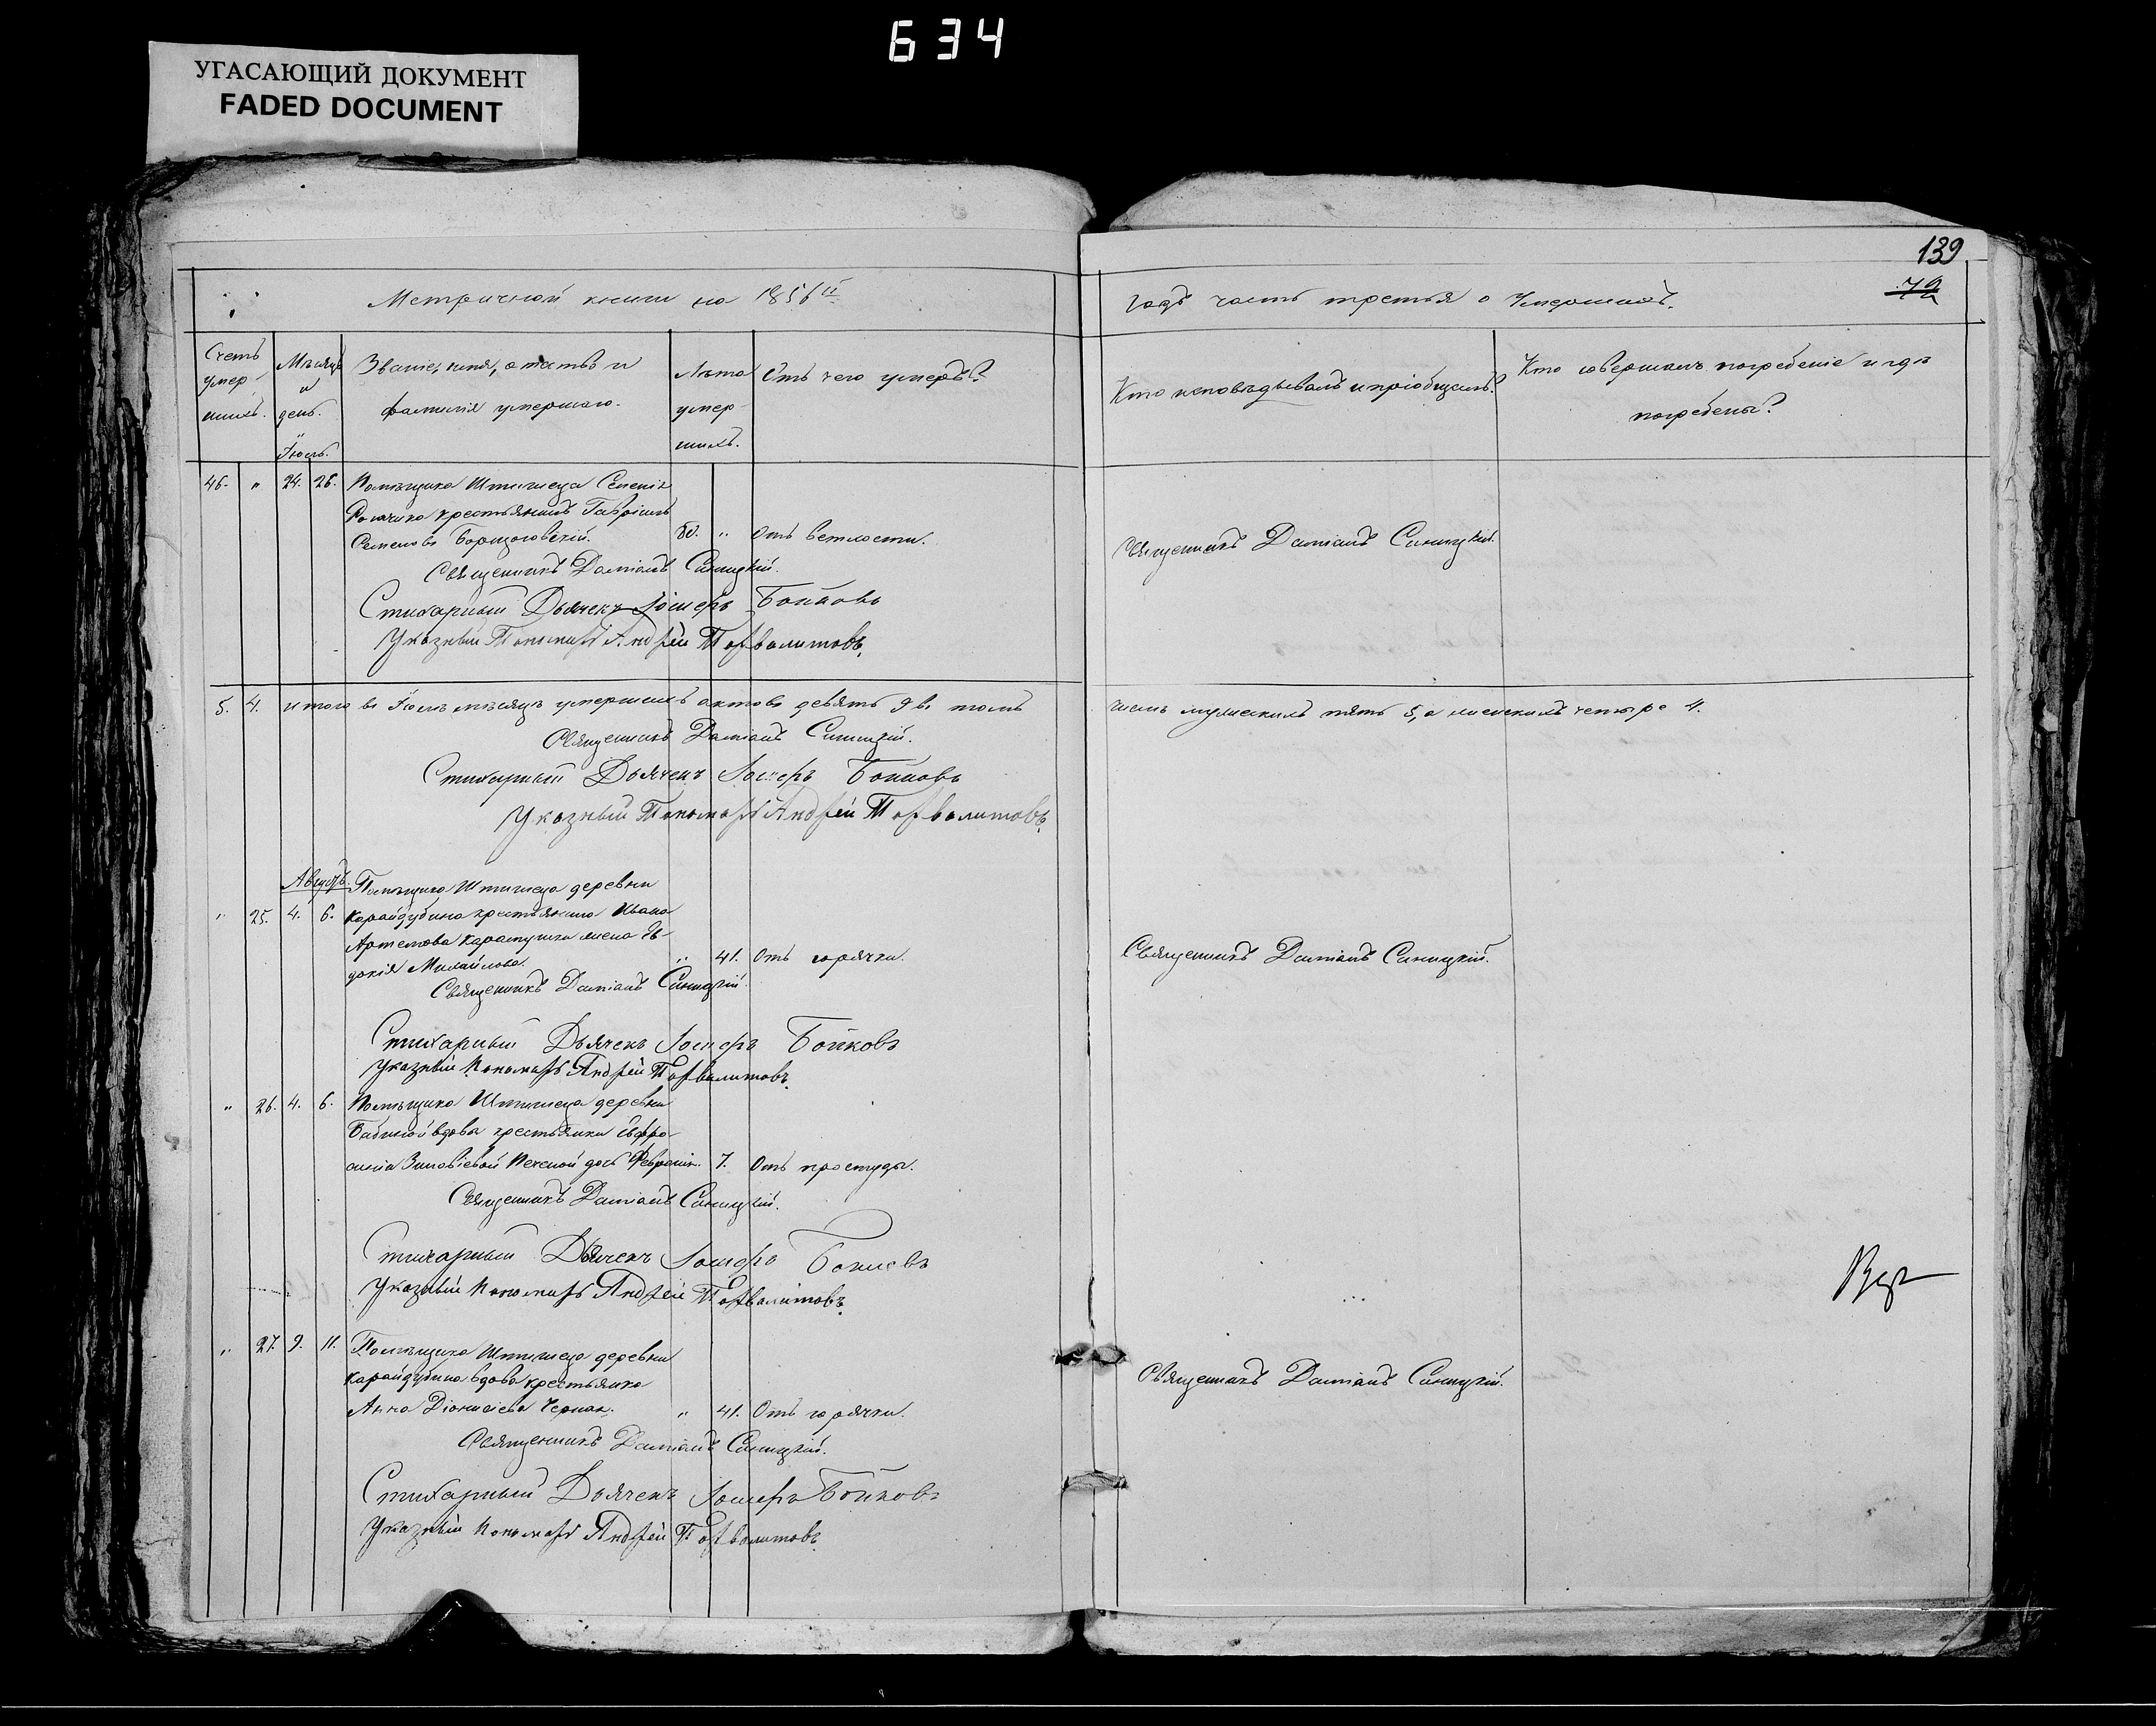 634
УГАСАЮЩИЙ ДОКУМЕНТ
FADED DOCUMENT
139
Метричной книги на 1856й
годъ часть третья о умершихъ.
Счетъ умершихъ.
Мѣсяцъ и день.
Званіе, имя, отчество и фамилія умершаго.
Лѣта умершихъ.
Отъ чего умеръ?
Кто исповѣдывалъ и пріобщалъ?
Кто совершалъ погребеніе и гдѣ погребены?
Іюль.
46. " 24. 26. Помѣщика Штиглеца
крестьянинъ Гавріилъ
Семеновъ " Отъ ветхости.
Священникъ Даміанъ Синицкій.
Священникъ Даміанъ Синицкій.
Стихарный Дьячекъ Бойковъ
Указный Пономарь Андрей
5. 4. итого въ Іюлѣ мѣсяцѣ умершихъ актовъ девять 9 въ томъ
числѣ мужескихъ пять 5, а женскихъ четыре 4.
Священникъ Даміанъ Синицкій.
Стихарный Дьячекъ Бойковъ
Указный Пономарь Андрей
Августъ. Помѣщика Штиглеца деревни
" 25. 4. 6. Карайдубина крестьянина Ивана
Артемова жена Ев-
докія Михайлова. " 41. Отъ горячки.
Священникъ Даміанъ Синицкій.
Священникъ Даміанъ Синицкій.
Стихарный Дьячекъ Бойковъ
Указный Пономарь Андрей
" 26. 4. 6. Помѣщика Штиглеца деревни
вдовы крестьянки Евфро-
синіи Зиновіевой дочь 7. Отъ простуды.
Священникъ Даміанъ Синицкій.
Стихарный Дьячекъ Бойковъ
Указный Пономарь Андрей
" 27. 9. 11. Помѣщика Штиглеца деревни
Карайдубина вдова крестьянка
Анна Діонисіева Черная. " 41. Отъ горячки.
Священникъ Даміанъ Синицкій.
Священникъ Даміанъ Синицкій.
Стихарный Дьячекъ Бойковъ
Указный Пономарь Андрей